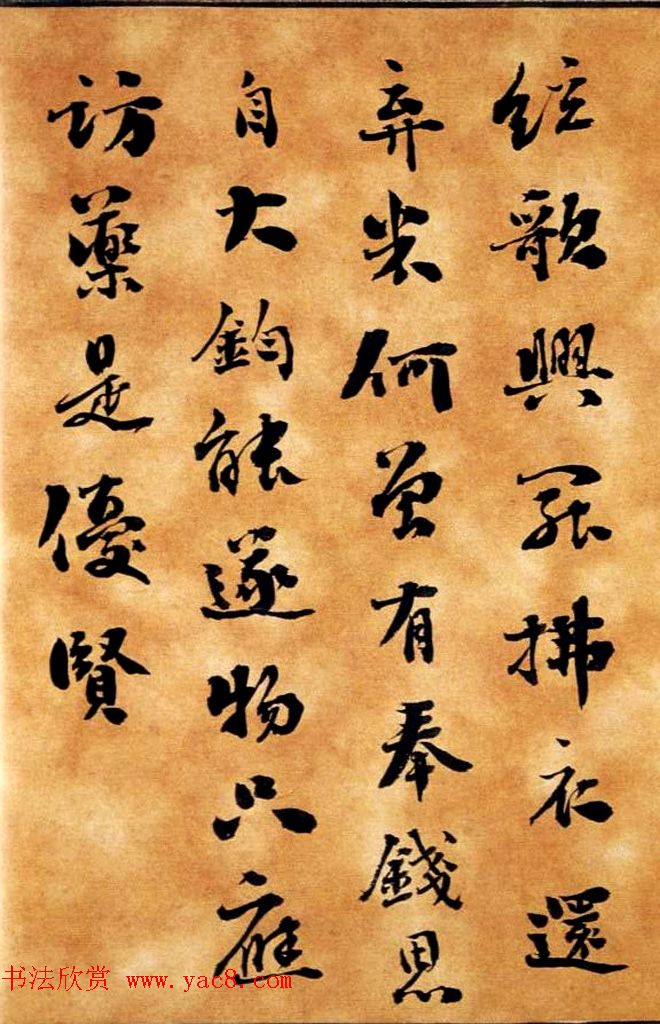 絃歌興罷拂衣還
弃何曾有奉錢思
自大鈞能遂物只應
訪藥是優賢
书法欣赏 www.yac8.com